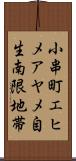 小串町エヒ
メアヤメ自
生南限地帯